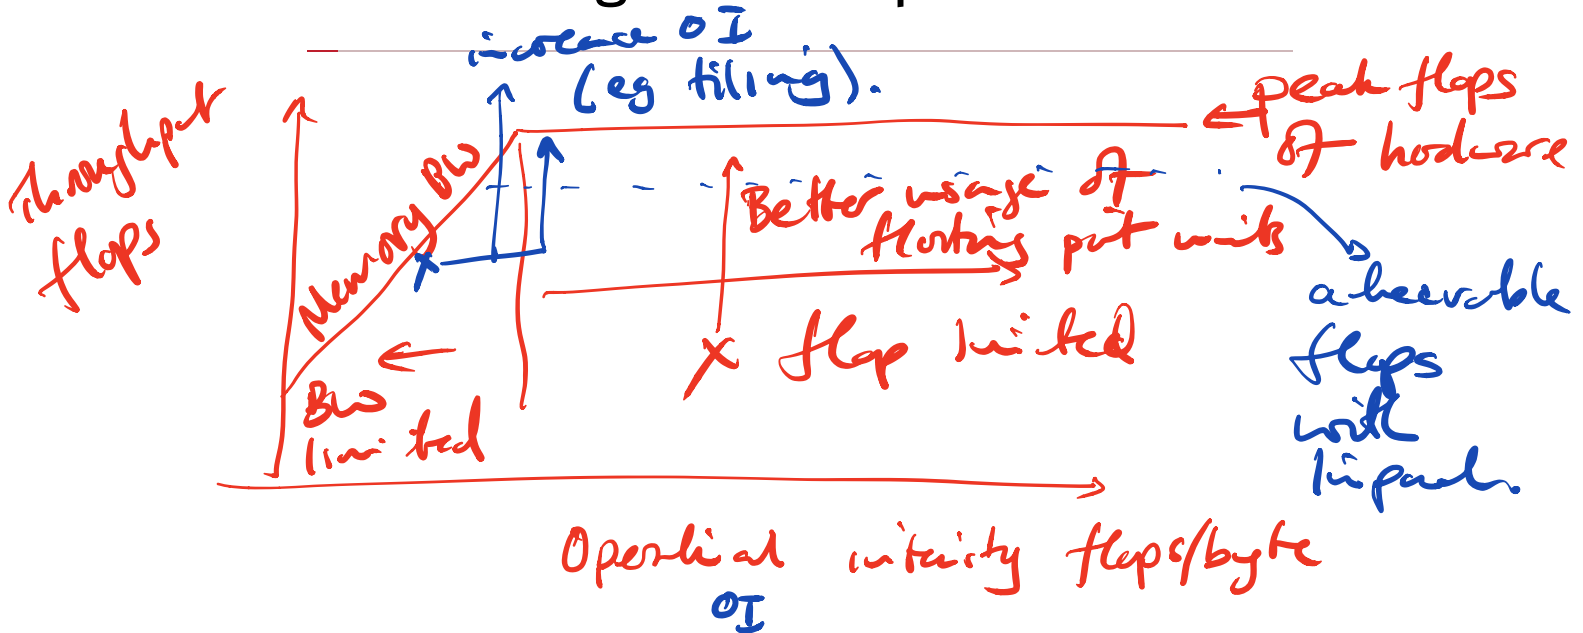 increase OI
(eg tilling).
peak flops
of hardware
Throughput
flops
Memory BW
Better usage of
floating point units
achievable
flops
with
linpack.
flop limited
BW
limited
Operational intensity flops/byte
OI